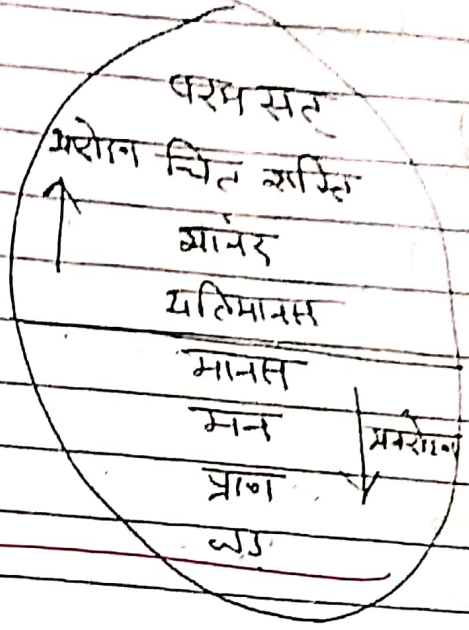 परम सत्
आरोहण चित शक्ति
आनंद
अतिमानस
मानस
मन
अवरोहण
प्राण
जड़